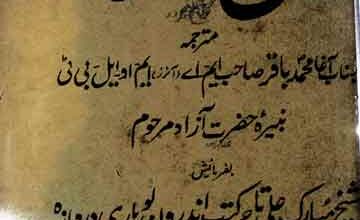 مترجمہ
جناب آغا محمد باقر صاحب ایم اے (آنرز) ایم او ایل بی ٹی
نبیرۂ حضرت آزاد مرحوم
بفرمائش
شیخ مبارک علی تاجر کتب اندرون لوہاری دروازہ